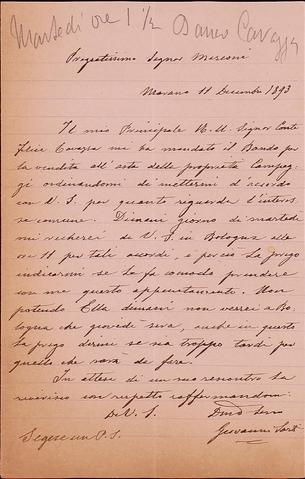 Martedì ore 1 1/2 Banco Cavazza
Pregiatissimo Signor Marconi
Marano 11 Decembre 1893
Il mio Principale N. U. Signor Conte
Felice Cavazza mi ha mandato il Bando per
la vendita all'asta delle proprietà Campeg-
gi ordinandomi di mettermi d'accordo
con V. S. per quanto riguarda l'interes-
se comune. Dimani giorno di martedì
mi recherei da V. S. in Bologna alle
ore 11 per tali accordi, e perciò La prego
indicarmi se La fa comodo prendere
con me questo appuntamento. Non
potendo Ella dimani non verrei a Bo-
logna che giovedì sera, anche in questo
La prego dirmi se sia troppo tardi per
quello che sarà da fare.
In attesa di un suo riscontro La
riverisco con rispetto raffermandomi
Di V. S. Devmo Servo
Segue un P.S. Giovanni Sarti